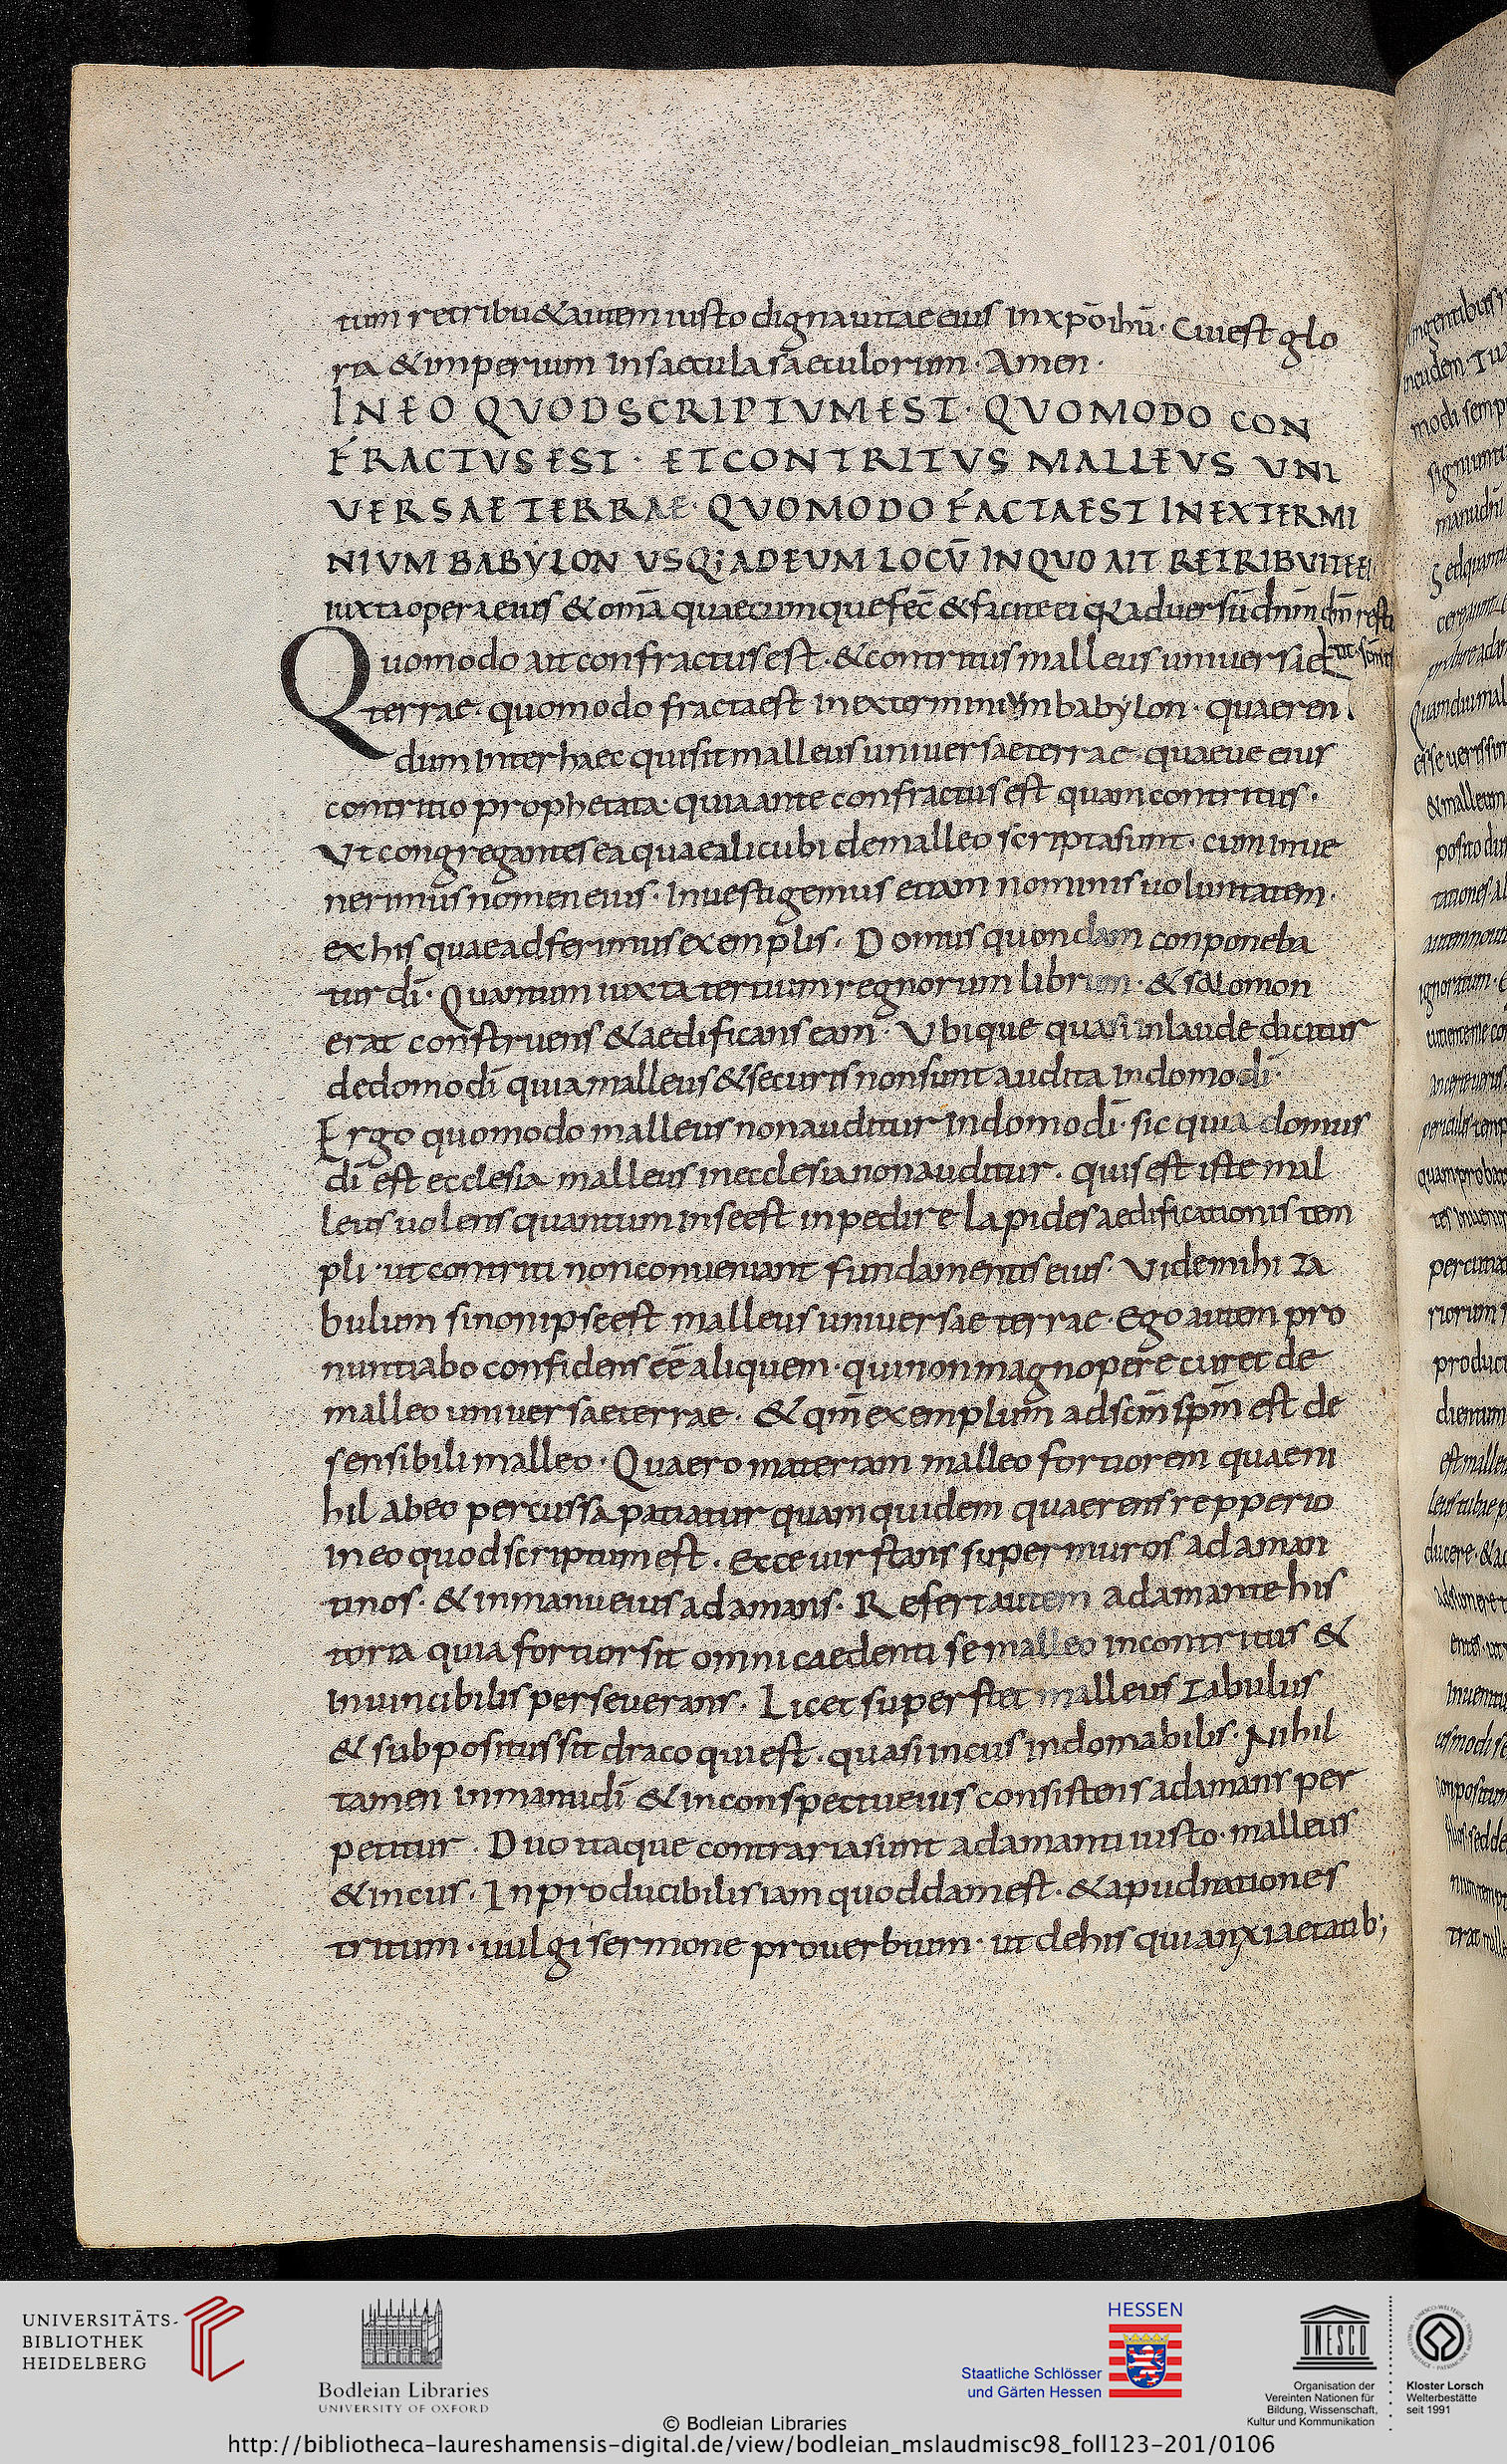 tum retribu&autem iusto digna uitae eius in xp̄o ihū· Cui est glo
ria & imperium in saecula saeculorum· Amen·
IN EO QUOD SCRIPTUM EST· QUOMODO CON
FRACTUS EST· ET CONTRITUS MALLEUS UNI
VERSAE TERRAE· QUOMODO FACTA EST IN EXTERMI
NIUM BABYLON USQ; AD EUM LOCŪ IN QUO AIT RETRIBUITE EI
iuxta opera eius & omā quaecumque fec̄ & facite ei
Quomodo ait confractus est· & contritus malleus uniuersae
terrae· quomodo fracta est in exterminium babylon· quaeren
dum inter haec quis sit malleus uniuersae terrae· quaeue eius
contritio prophetata· quia ante confractus est quam contritus·
Ut congregantes ea quae alicubi de malleo scripta sunt· cum inue
nerimus nomen eius· Inuestigemus etiam nominis uoluntatem·
ex his quae adferimus exemplis· Domus quondam conponeba
tur dī· Quantum iuxta tertium regnorum librum· & salomon
erat construens & aedificans eam· Ubique quasi in laude dicitur
de domo dī quia malleus & securis non sunt audita in domo dī·
Ergo quomodo malleus non auditur in domo dī· sic quia domus
dī est ecclesia malleus in ecclesia non auditur· quis est iste mal
leus uolens quantum in se est inpedire lapides aedificationis tem
pli· ut contriti non conueniant fundamentis eius· Vide mihi za
bulum si non ipse est malleus uniuersae terrae· Ego autem pro
nuntiabo confidens eē aliquem· qui non magnopere curet de
malleo uniuersae terrae· & qm̄ exemplum adsum̄ spm̄ est de
sensibili malleo· Quaero materiam malleo fortiorem quae ni
hil ab eo percussa patiatur quam quidem quaerens repperio
in eo quod scriptum est· Ecce uir stans super muros adaman
tinos· & in manu eius adamans· Refert autem adamante his
toria quia fortior sit omni caedenti se malleo incontritus &
inuincibilis perseuerans· Licet super stet malleus zabulus
& subpositus sit draco qui est· quasi incus indomabilis· Nihil
tamen in manu dī & in conspectu eius consistens adamans per
petitur· Duo itaque contraria sunt adamanti iusto· malleus
& incus· Inproducibilis iam quoddam est· & apud nationes
tritum· uulgi sermone prouerbium· ut de his qui anxietatib;
UNIVERSITÄTS-
BIBLIOTHEK
HEIDELBERG
Bodleian Libraries
UNIVERSITY OF OXFORD
HESSEN
Staatliche Schlösser
und Gärten Hessen
UNESCO
Organisation der
Vereinten Nationen für
Bildung, Wissenschaft,
Kultur und Kommunikation
Kloster Lorsch
Welterbestätte
seit 1991
© Bodleian Libraries
http://bibliotheca-laureshamensis-digital.de/view/bodleian_mslaudmisc98_foll123-201/0106